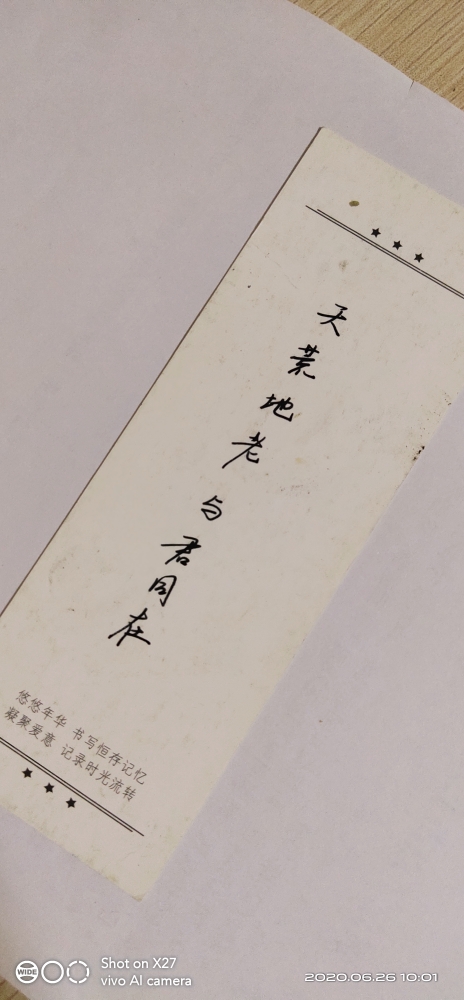 天荒地老 与君同在
悠悠年华 书写恒存记忆
凝聚爱意 记录时光流转
WIDE
Shot on X27
vivo AI camera
2020.06.26 10:01